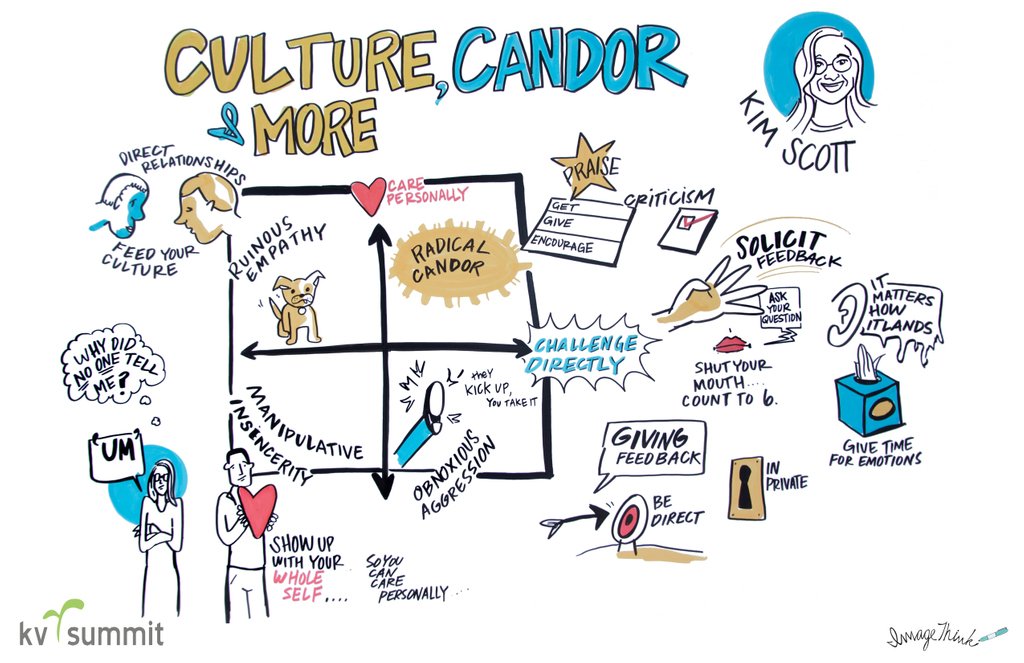 CULTURE, CANDOR
& MORE
KIM SCOTT
DIRECT
RELATIONSHIPS
FEED YOUR
CULTURE
CARE
PERSONALLY
RUINOUS
EMPATHY
RADICAL
CANDOR
PRAISE
GET
GIVE
ENCOURAGE
CRITICISM
SOLICIT
FEEDBACK
ASK
YOUR
QUESTION
IT
MATTERS
HOW
IT LANDS
CHALLENGE
DIRECTLY
SHUT YOUR
MOUTH....
COUNT TO 6.
GIVE TIME
FOR EMOTIONS
WHY DID
NO ONE TELL
ME?
"UM"
MANIPULATIVE
INSENCERITY
THEY
KICK UP,
YOU TAKE IT
OBNOXIOUS
AGGRESSION
GIVING
FEEDBACK
BE
DIRECT
IN
PRIVATE
SHOW UP
WITH YOUR
WHOLE
SELF....
SO YOU
CAN
CARE
PERSONALLY...
kv summit
ImageThink